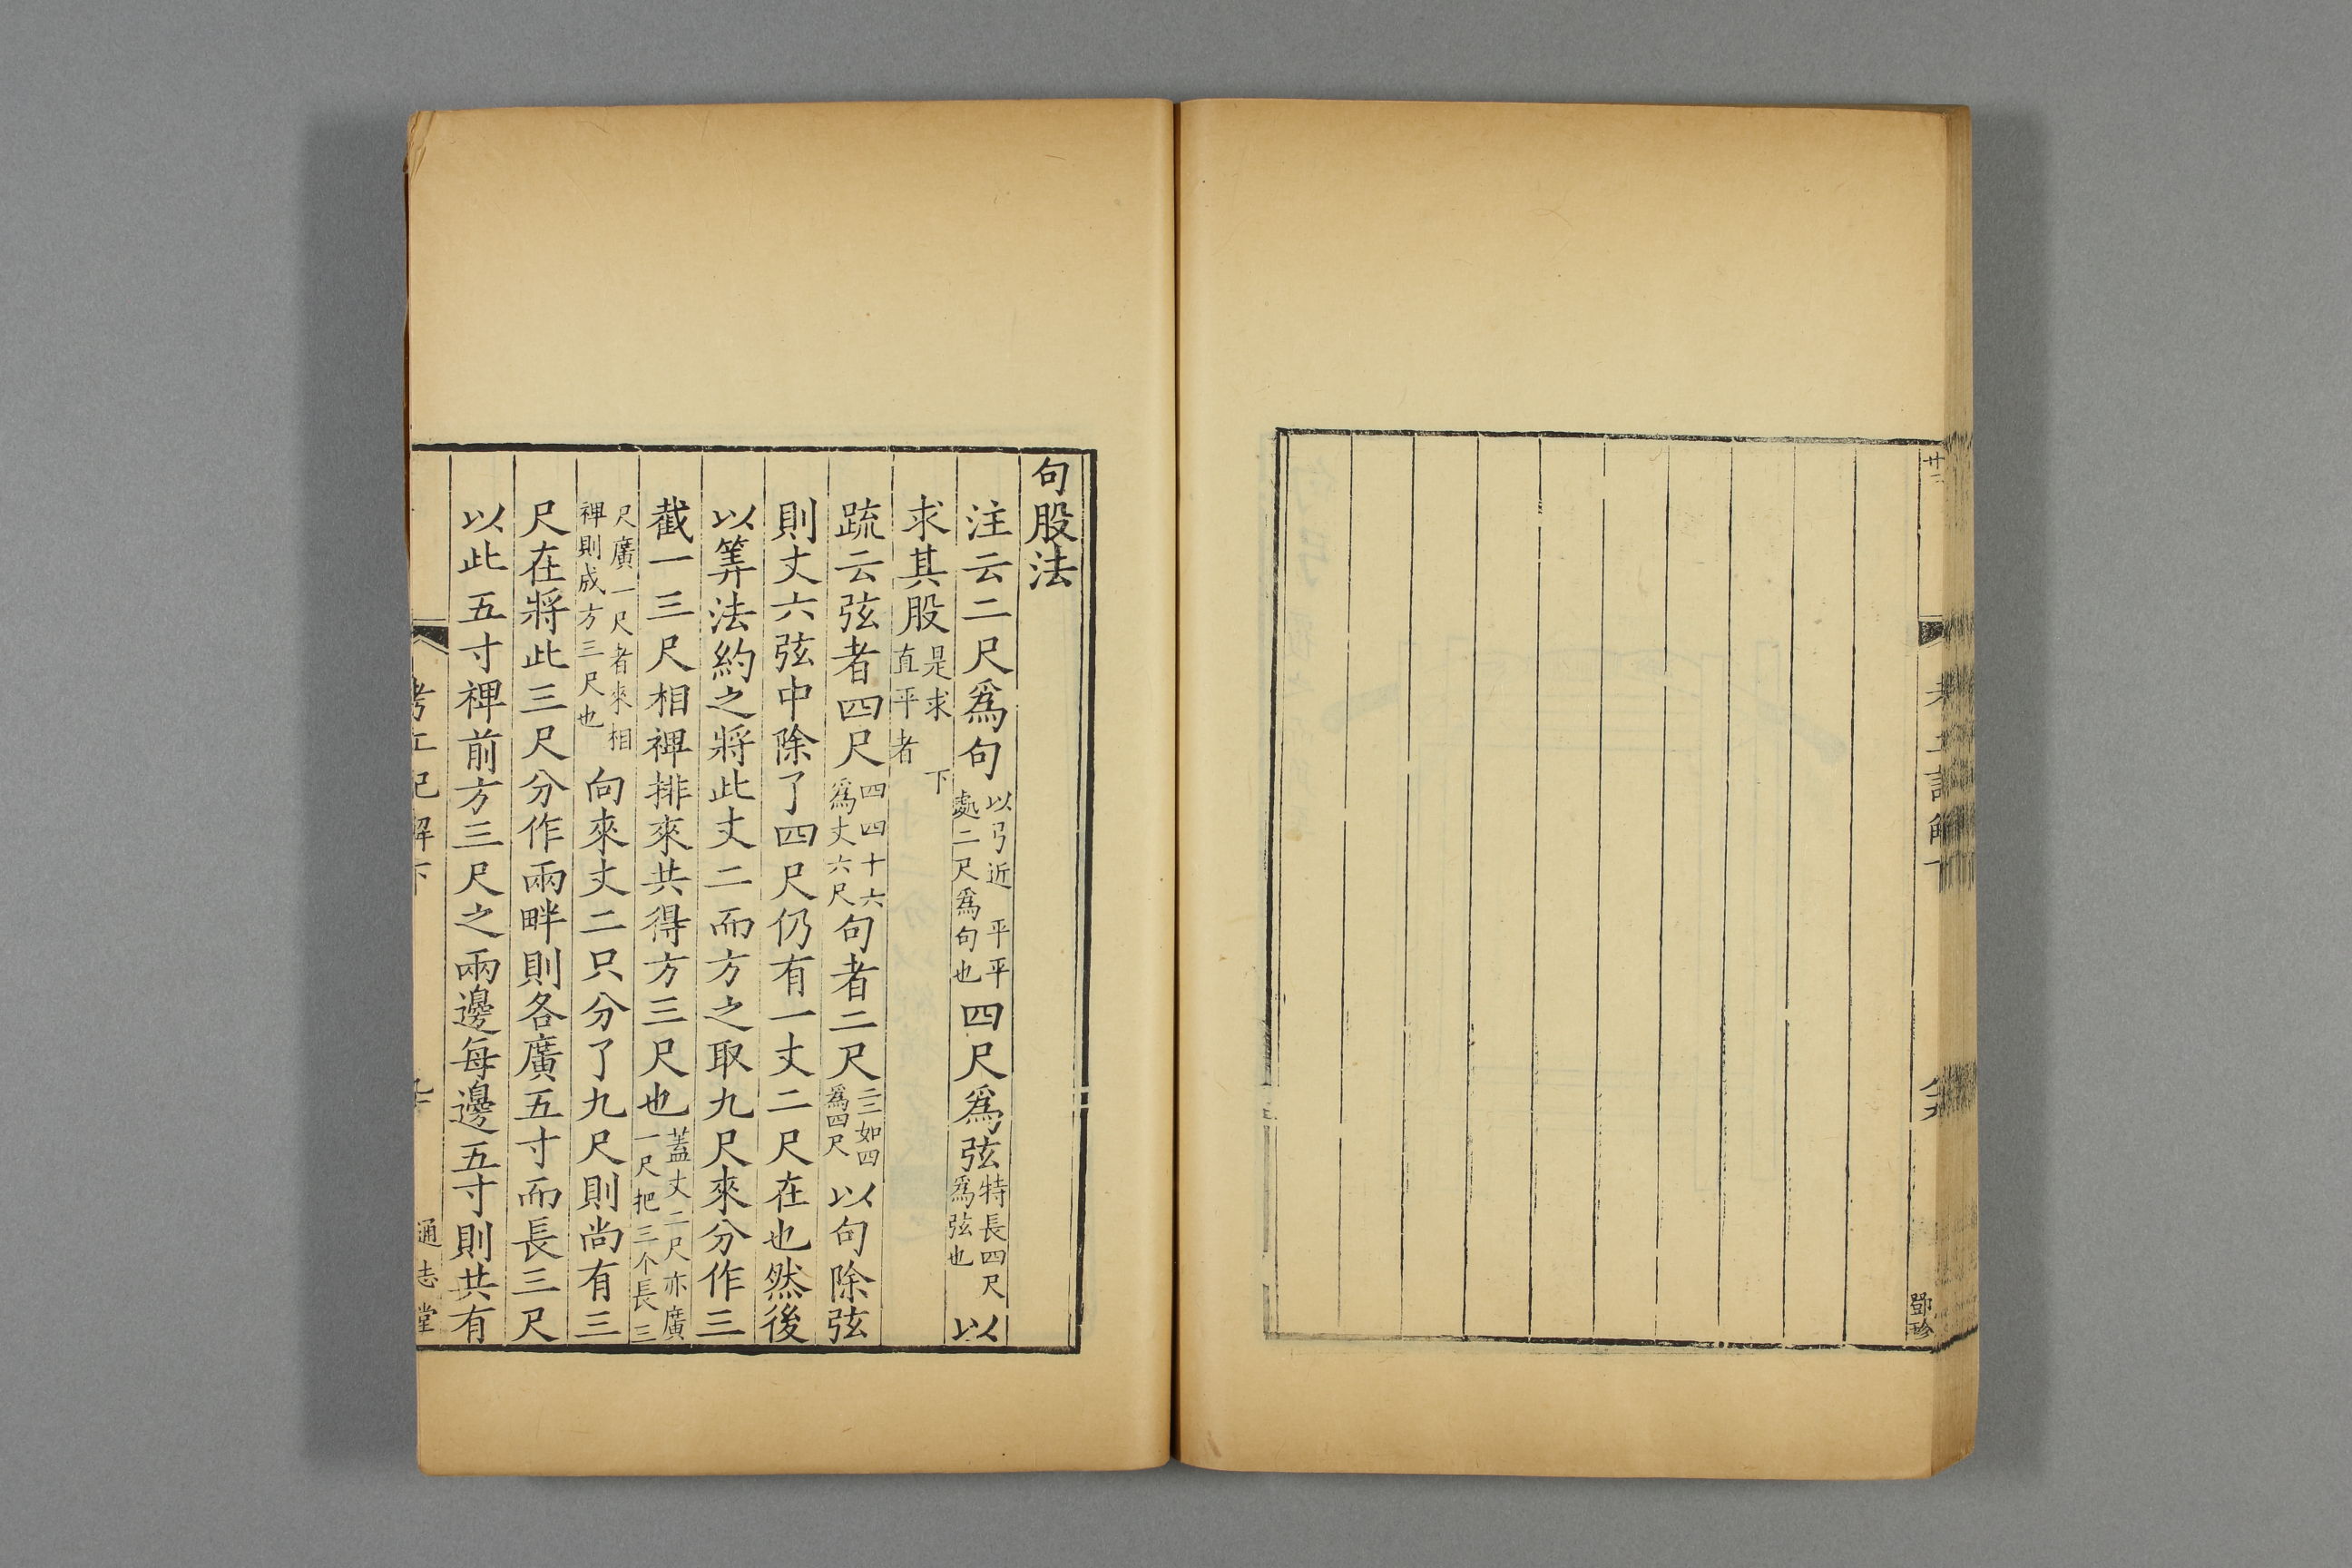 鄧珍
句股法
注云二尺爲句以弓近平平處二尺爲句也四尺爲弦特長四尺爲弦也以
求其股是求下直平者
疏云弦者四尺四四十六爲丈六尺句者二尺二二如四爲四尺以句除弦
則丈六弦中除了四尺仍有一丈二尺在也然後
以筭法約之將此丈二而方之取九尺來分作三
截一三尺相裨排來共得方三尺也蓋丈二尺亦廣一尺把三个長三
尺廣一尺者來相裨則成方三尺也向來丈二只分了九尺則尚有三
尺在將此三尺分作兩畔則各廣五寸而長三尺
以此五寸裨前方三尺之兩邊每邊五寸則共有
考工記解下
通志堂